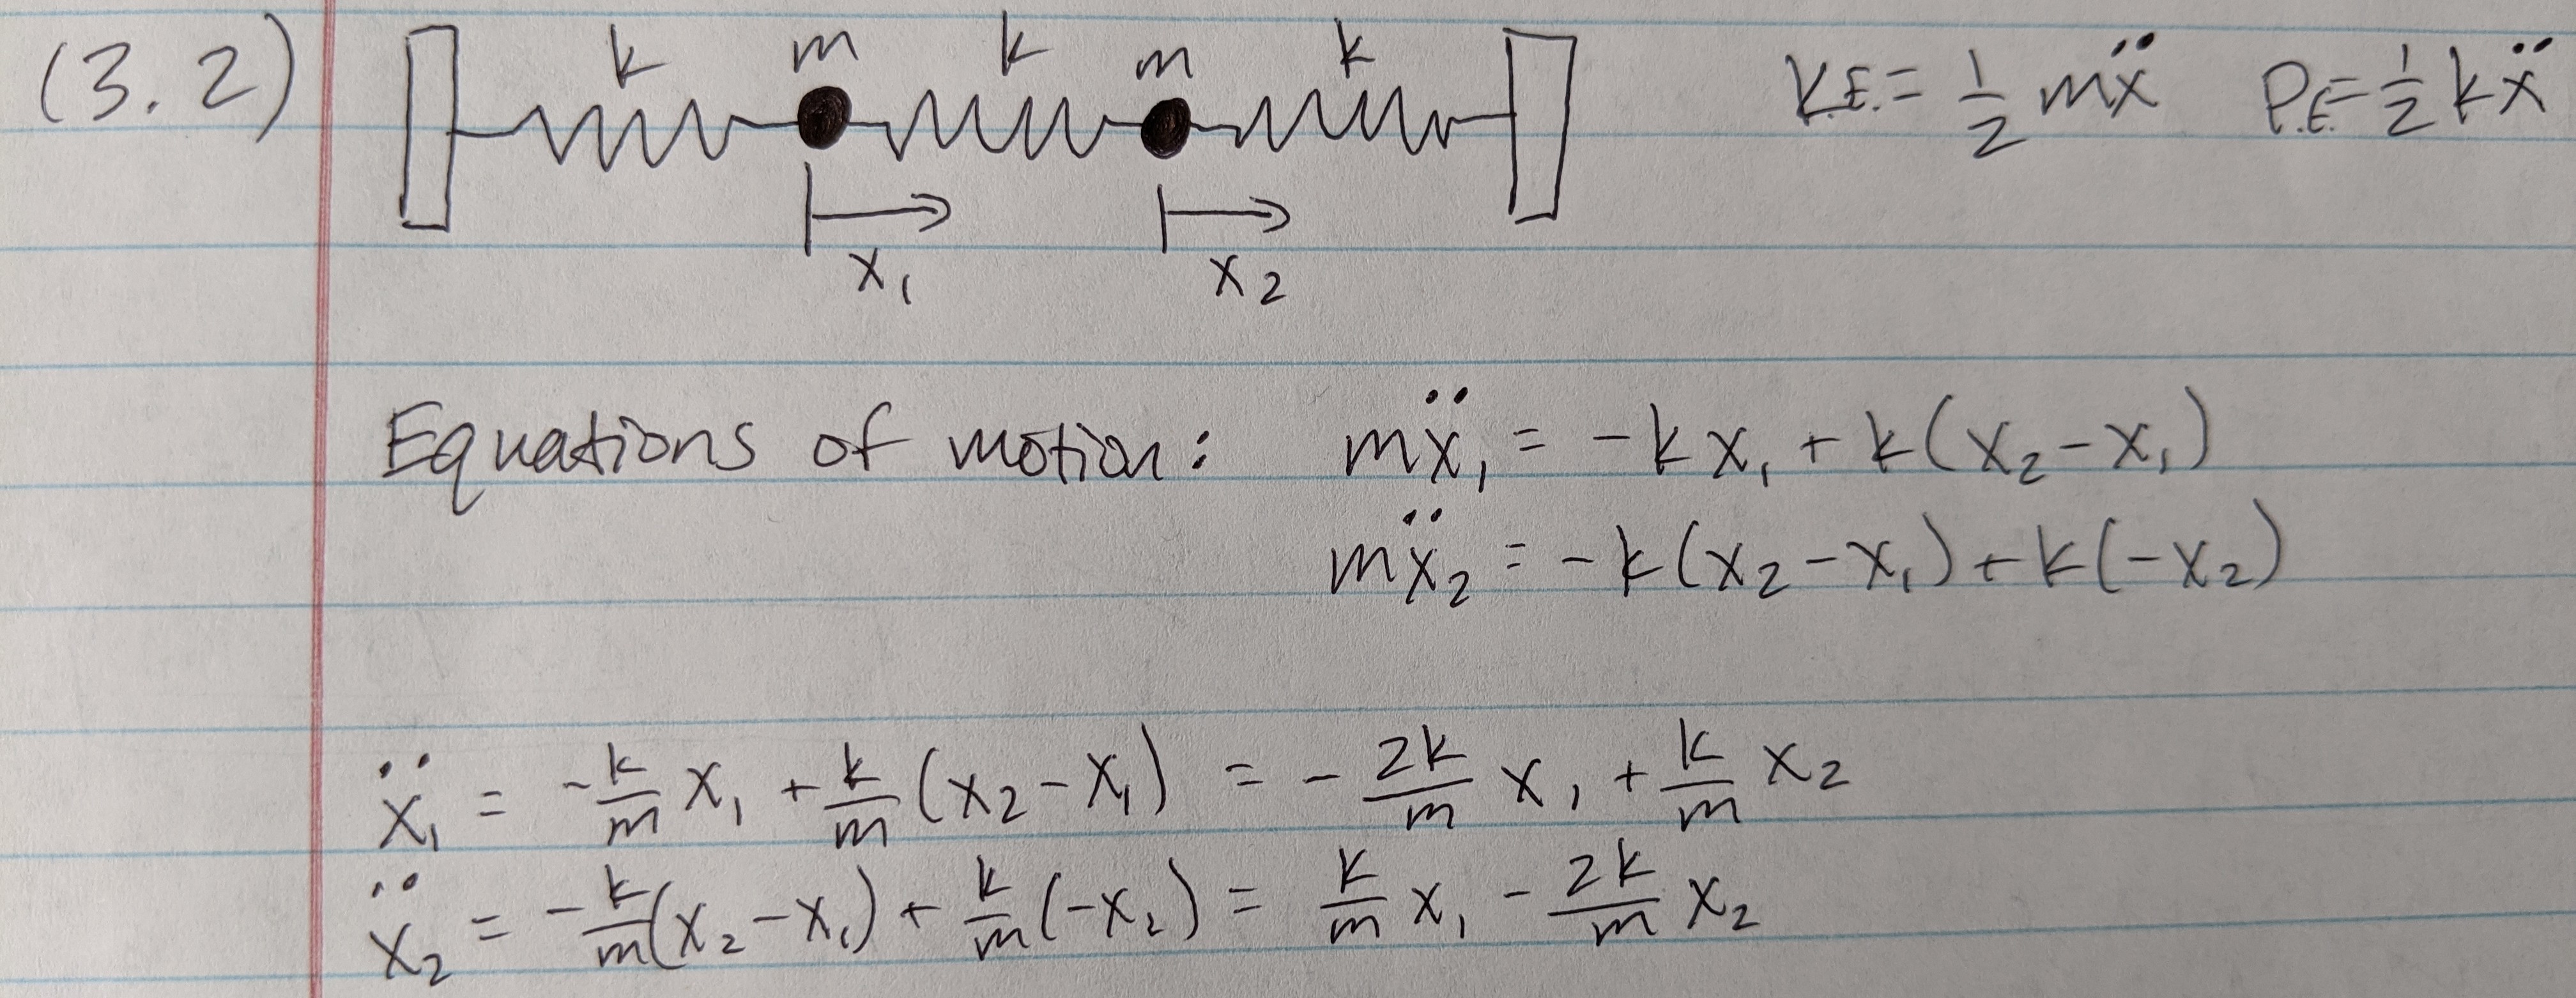 (3.2) k m k m k K.E. = 1/2 mẍ P.E. = 1/2 kẍ
x₁ x₂
Equations of motion: mẍ₁ = -kx₁ + k(x₂-x₁)
mẍ₂ = -k(x₂-x₁) + k(-x₂)
ẍ₁ = -k/m x₁ + k/m (x₂-x₁) = -2k/m x₁ + k/m x₂
ẍ₂ = -k/m (x₂-x₁) + k/m (-x₂) = k/m x₁ - 2k/m x₂